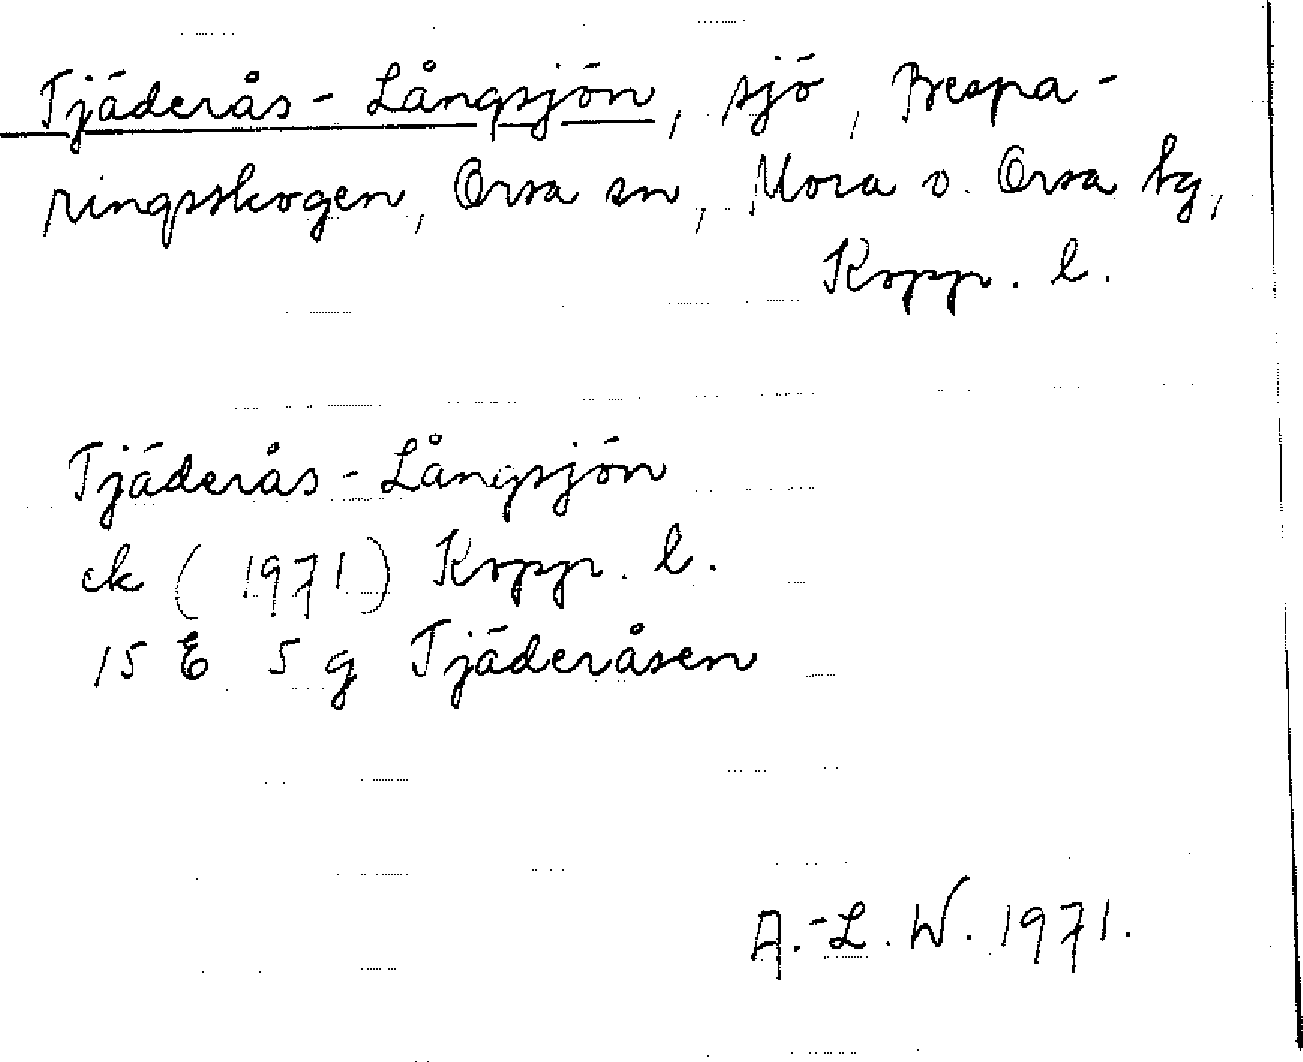 Tjäderås-Långsjön, sjö, Bespa-
ringsskogen, Orsa sn, Mora o. Orsa tg,
Kopp. l.
Tjäderås-Långsjön
ek (1971) Kopp. l.
15 E 5 g Tjäderåsen
A.-L. W. 1971.